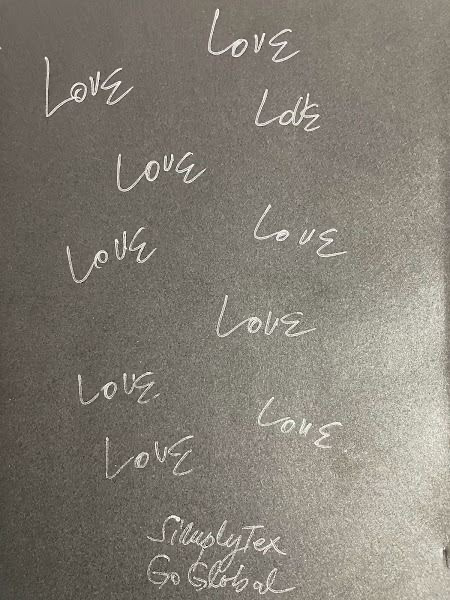 Love
Love
Love
Love
Love
Love
Love
Love
Love
Love
SimplyTex
Go Global